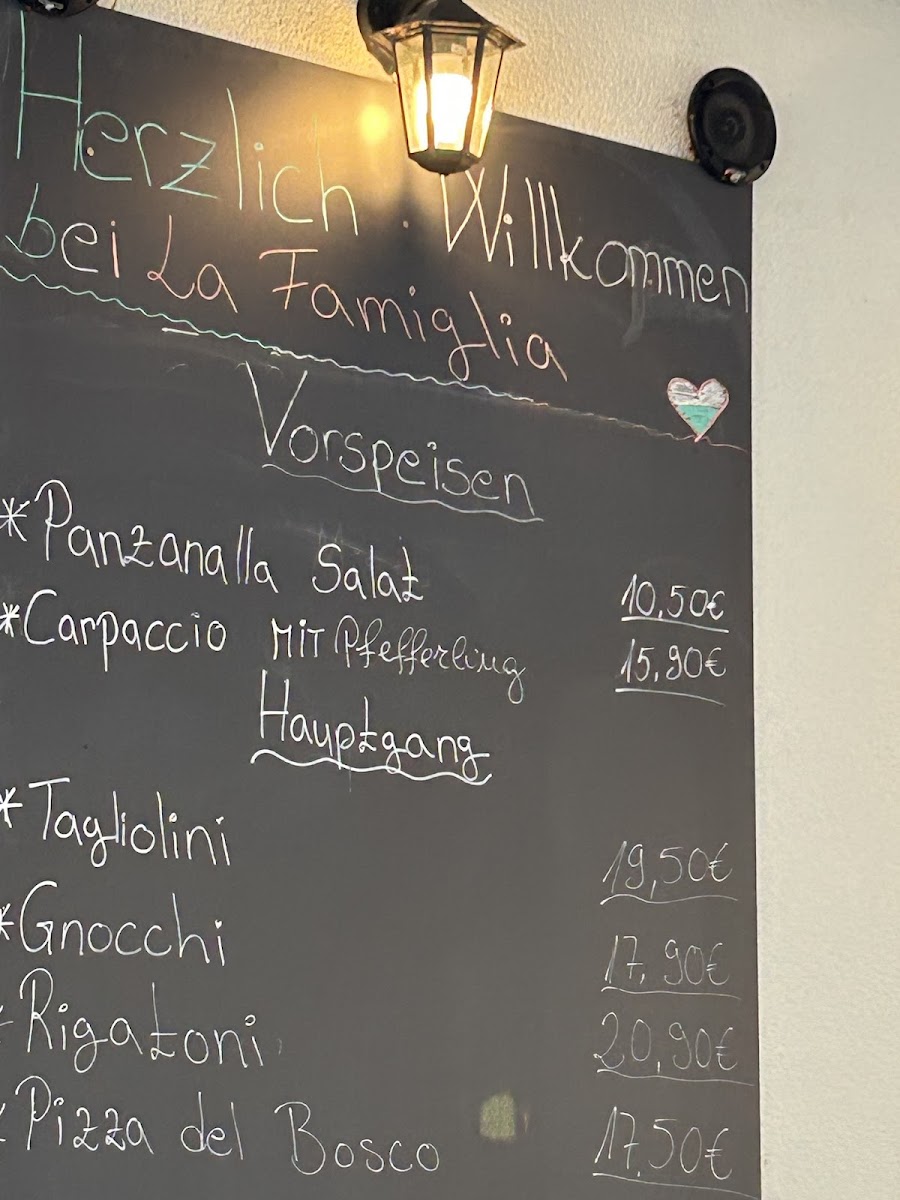 Herzlich Willkommen
bei La Famiglia
Vorspeisen
*Panzanalla Salat 10,50€
*Carpaccio MIT Pfefferling 15,90€
Hauptgang
*Tagliolini 19,50€
*Gnocchi 17,90€
*Rigatoni 20,90€
*Pizza del Bosco 17,50€